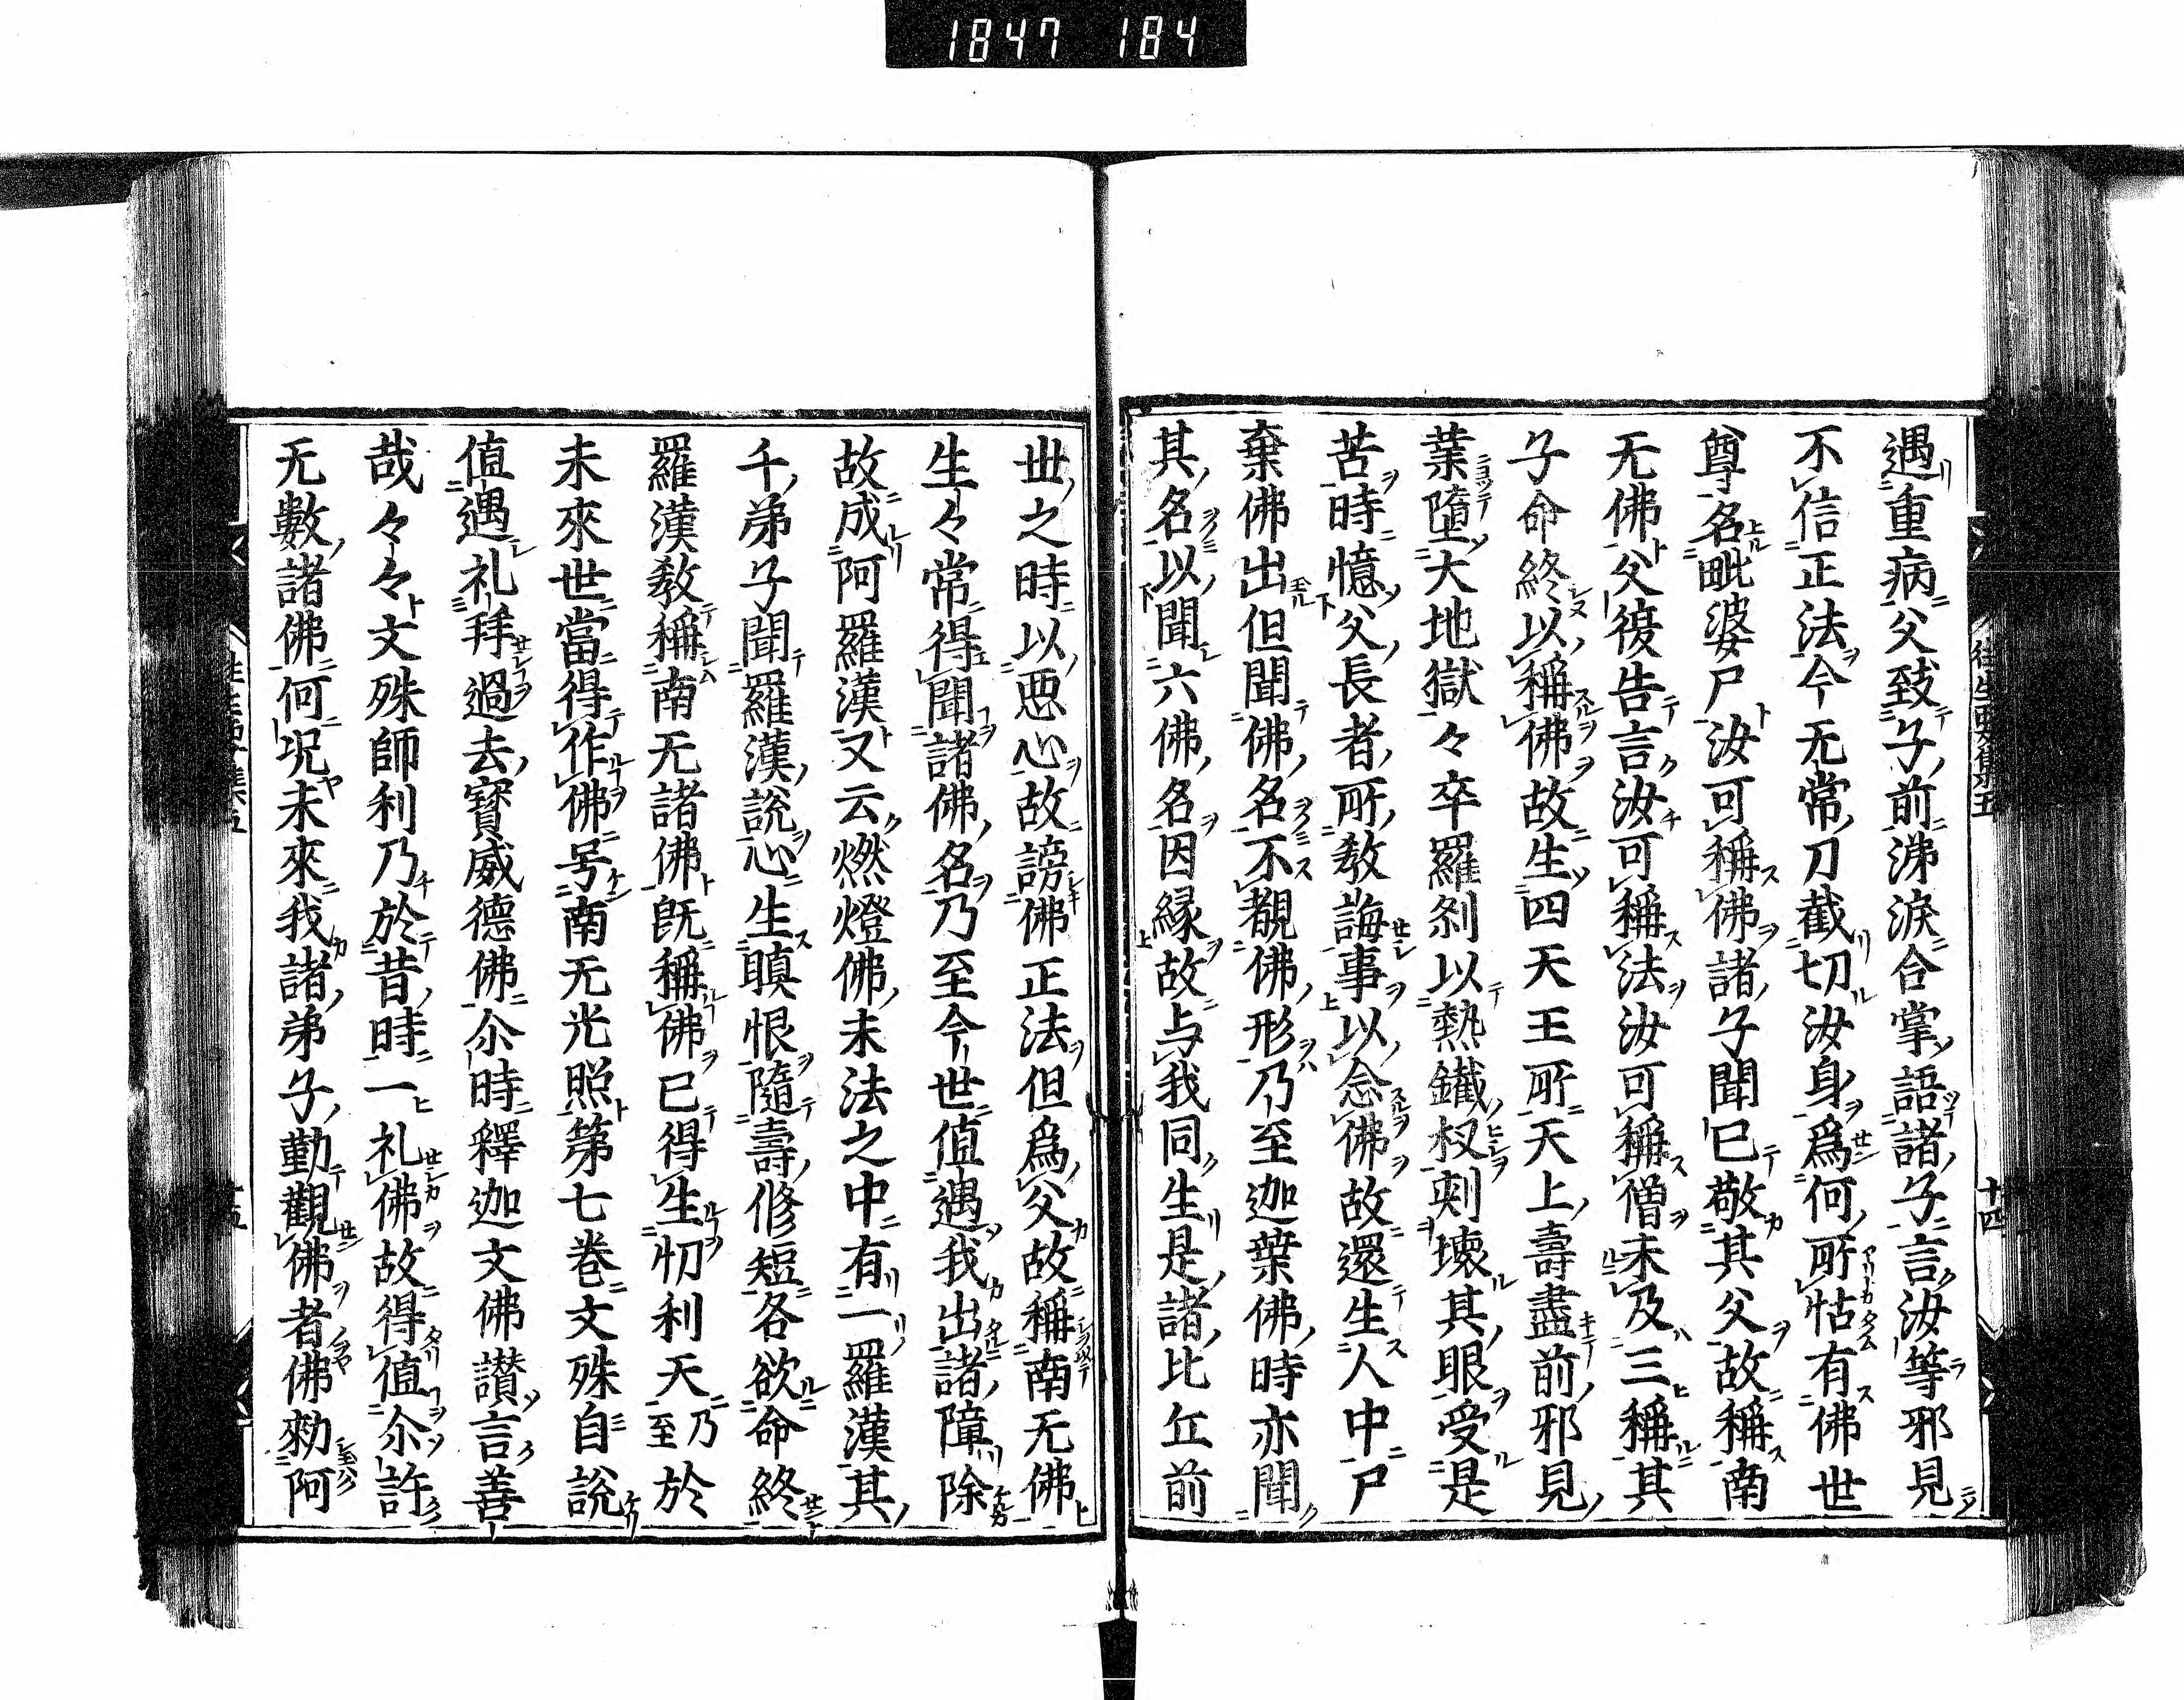 1847 184
遇重病父致子前涕淚合掌語諸子言汝等邪見
不信正法今无常刀截切汝身爲何所怙有佛世
尊名毗婆尸汝可稱佛諸子聞已敬其父故稱南
无佛父復告言汝可稱法汝可稱僧未及三稱其
子命終以稱佛故生四天王所天上壽盡前邪見
業墮大地獄々卒羅刹以熱鐵杈刺壞其眼受是
苦時憶父長者所教誨事以念佛故還生人中尸
棄佛出但聞佛名不覩佛形乃至迦葉佛時亦聞
其名以聞六佛名因縁故与我同生是諸比丘前
世之時以惡心故謗佛正法但爲父故稱南无佛
生々常得聞諸佛名乃至今世值遇我出諸障除
故成阿羅漢又云燃燈佛末法之中有一羅漢其
千弟子聞羅漢說心生瞋恨隨壽修短各欲命終
羅漢教稱南无諸佛旣稱佛已得生忉利天乃至於
未來世當得作佛号南无光照第七巻文殊自說
值遇礼拜過去寳威德佛尒時釋迦文佛讃言善
哉々々文殊師利乃於昔時一礼佛故得值尒許
无數諸佛何况未來我諸弟子勤觀佛者佛勑阿
往生要集五
十四